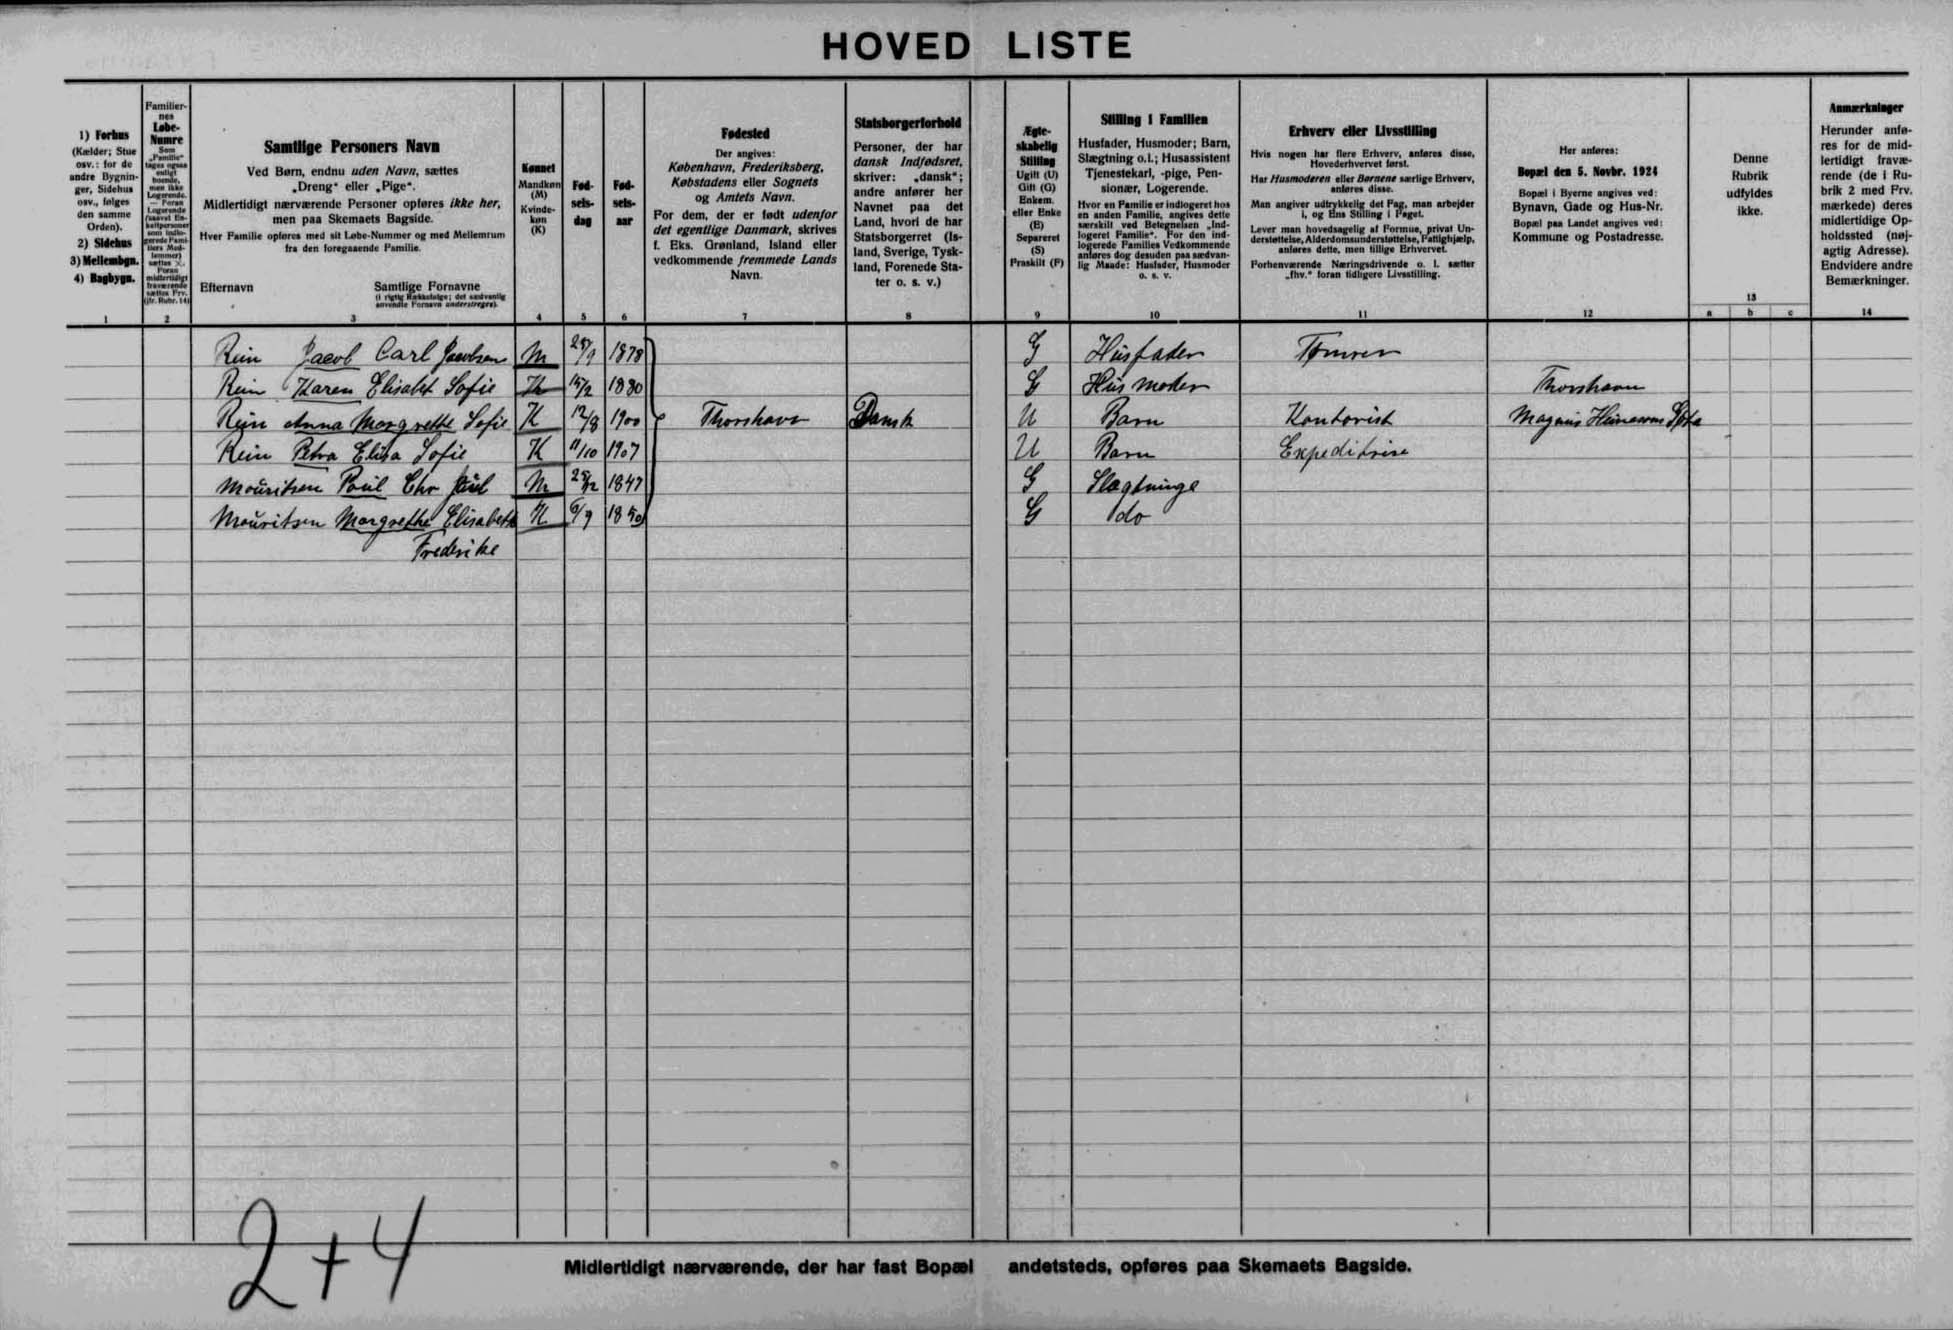 HOVED LISTE
1) Forhus
(Kælder; Stue
osv.: for de
andre Bygnin-
ger, Sidehus
osv., følges
den samme
Orden).
2) Sidehus
3) Mellembgn.
4) Bagbygn.
1
Familier-
nes
Løbe-
Numre
Som
„Familie“
tages ogsaa
enligt
boende,
men ikke
Logerende.
— Foran
Logerende
(saavel En-
keltpersoner
som indlo-
gerede Fami-
liers Med-
lemmer)
sættes ×.
Foran
midlertidigt
fraværende
sættes Frv.
(jfr. Rubr. 14)
2
Samtlige Personers Navn
Ved Børn, endnu uden Navn, sættes
„Dreng“ eller „Pige“.
Midlertidigt nærværende Personer opføres ikke her,
men paa Skemaets Bagside.
Hver Familie opføres med sit Løbe-Nummer og med Mellemrum
fra den foregaaende Familie.
Efternavn Samtlige Fornavne
(i rigtig Rækkefølge; det sædvanlig
anvendte Fornavn understreges).
3
Kønnet
Mandkøn
(M)
Kvinde-
køn
(K)
4
Fød-
sels-
dag
5
Fød-
sels-
aar
6
Fødested
Der angives:
København, Frederiksberg,
Købstadens eller Sognets
og Amtets Navn.
For dem, der er født udenfor
det egentlige Danmark, skrives
f. Eks. Grønland, Island eller
vedkommende fremmede Lands
Navn.
7
Statsborgerforhold
Personer, der har
dansk Indfødsret,
skriver: „dansk“;
andre anfører her
Navnet paa det
Land, hvori de har
Statsborgerret (Is-
land, Sverige, Tysk-
land, Forenede Sta-
ter o. s. v.)
8
Ægte-
skabelig
Stilling
Ugift (U)
Gift (G)
Enkem.
eller Enke
(E)
Separeret
(S)
Fraskilt (F)
9
Stilling i Familien
Husfader, Husmoder; Barn,
Slægtning o.l.; Husassistent
Tjenestekarl, -pige, Pen-
sionær, Logerende.
Hvor en Familie er indlogeret hos
en anden Familie, angives dette
særskilt ved Betegnelsen „Ind-
logeret Familie“. For den ind-
logerede Families Vedkommende
anføres dog desuden paa sædvan-
lig Maade: Husfader, Husmoder
o. s. v.
10
Erhverv eller Livsstilling
Hvis nogen har flere Erhverv, anføres disse,
Hovederhvervet først.
Har Husmoderen eller Børnene særlige Erhverv,
anføres disse.
Man angiver udtrykkelig det Fag, man arbejder
i, og Ens Stilling i Faget.
Lever man hovedsagelig af Formue, privat Un-
derstøttelse, Alderdomsunderstøttelse, Fattighjælp,
anføres dette, men tillige Erhvervet.
Forhenværende Næringsdrivende o. l. sætter
„fhv.“ foran tidligere Livsstilling.
11
Her anføres:
Bopæl den 5. Novbr. 1924
Bopæl i Byerne angives ved:
Bynavn, Gade og Hus-Nr.
Bopæl paa Landet angives ved:
Kommune og Postadresse.
12
Denne
Rubrik
udfyldes
ikke.
13
a b c
Anmærkninger
Herunder anfø-
res for de mid-
lertidigt fravæ-
rende (de i Ru-
brik 2 med Frv.
mærkede) deres
midlertidige Op-
holdssted (nøj-
agtig Adresse).
Endvidere andre
Bemærkninger.
14
Rein Jacob Carl Jacobsen M 1878 G Husfader Tømrer
Rein Karen Elisabet Sofie K 15/2 1880 G Husmoder Thorshavn
Rein Anna Margrethe Sofie K 12/8 1900 Thorshavn Dansk U Barn Kontorist Magnus Heinesens
Rein Petra Elisa Sofie K 11/10 1907 U Barn Expeditrise
Mouritsen Poul Chr M 1847 G Slægtninge
Mouritsen Margrethe Elisabeth K 6/9 1850 G do
Frederike
2+4
Midlertidigt nærværende, der har fast Bopæl andetsteds, opføres paa Skemaets Bagside.